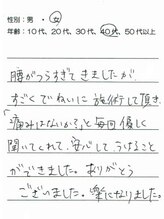 性別：男 ・ 女
年齢：10代、20代、30代、40代、50代以上
腰がつらすぎてきましたが
すごくていねいに施術して頂き
「痛みはないか？」と毎回優しく
聞いてくれて、安心してうけること
ができました。ありがとう
ございました。楽になりました。